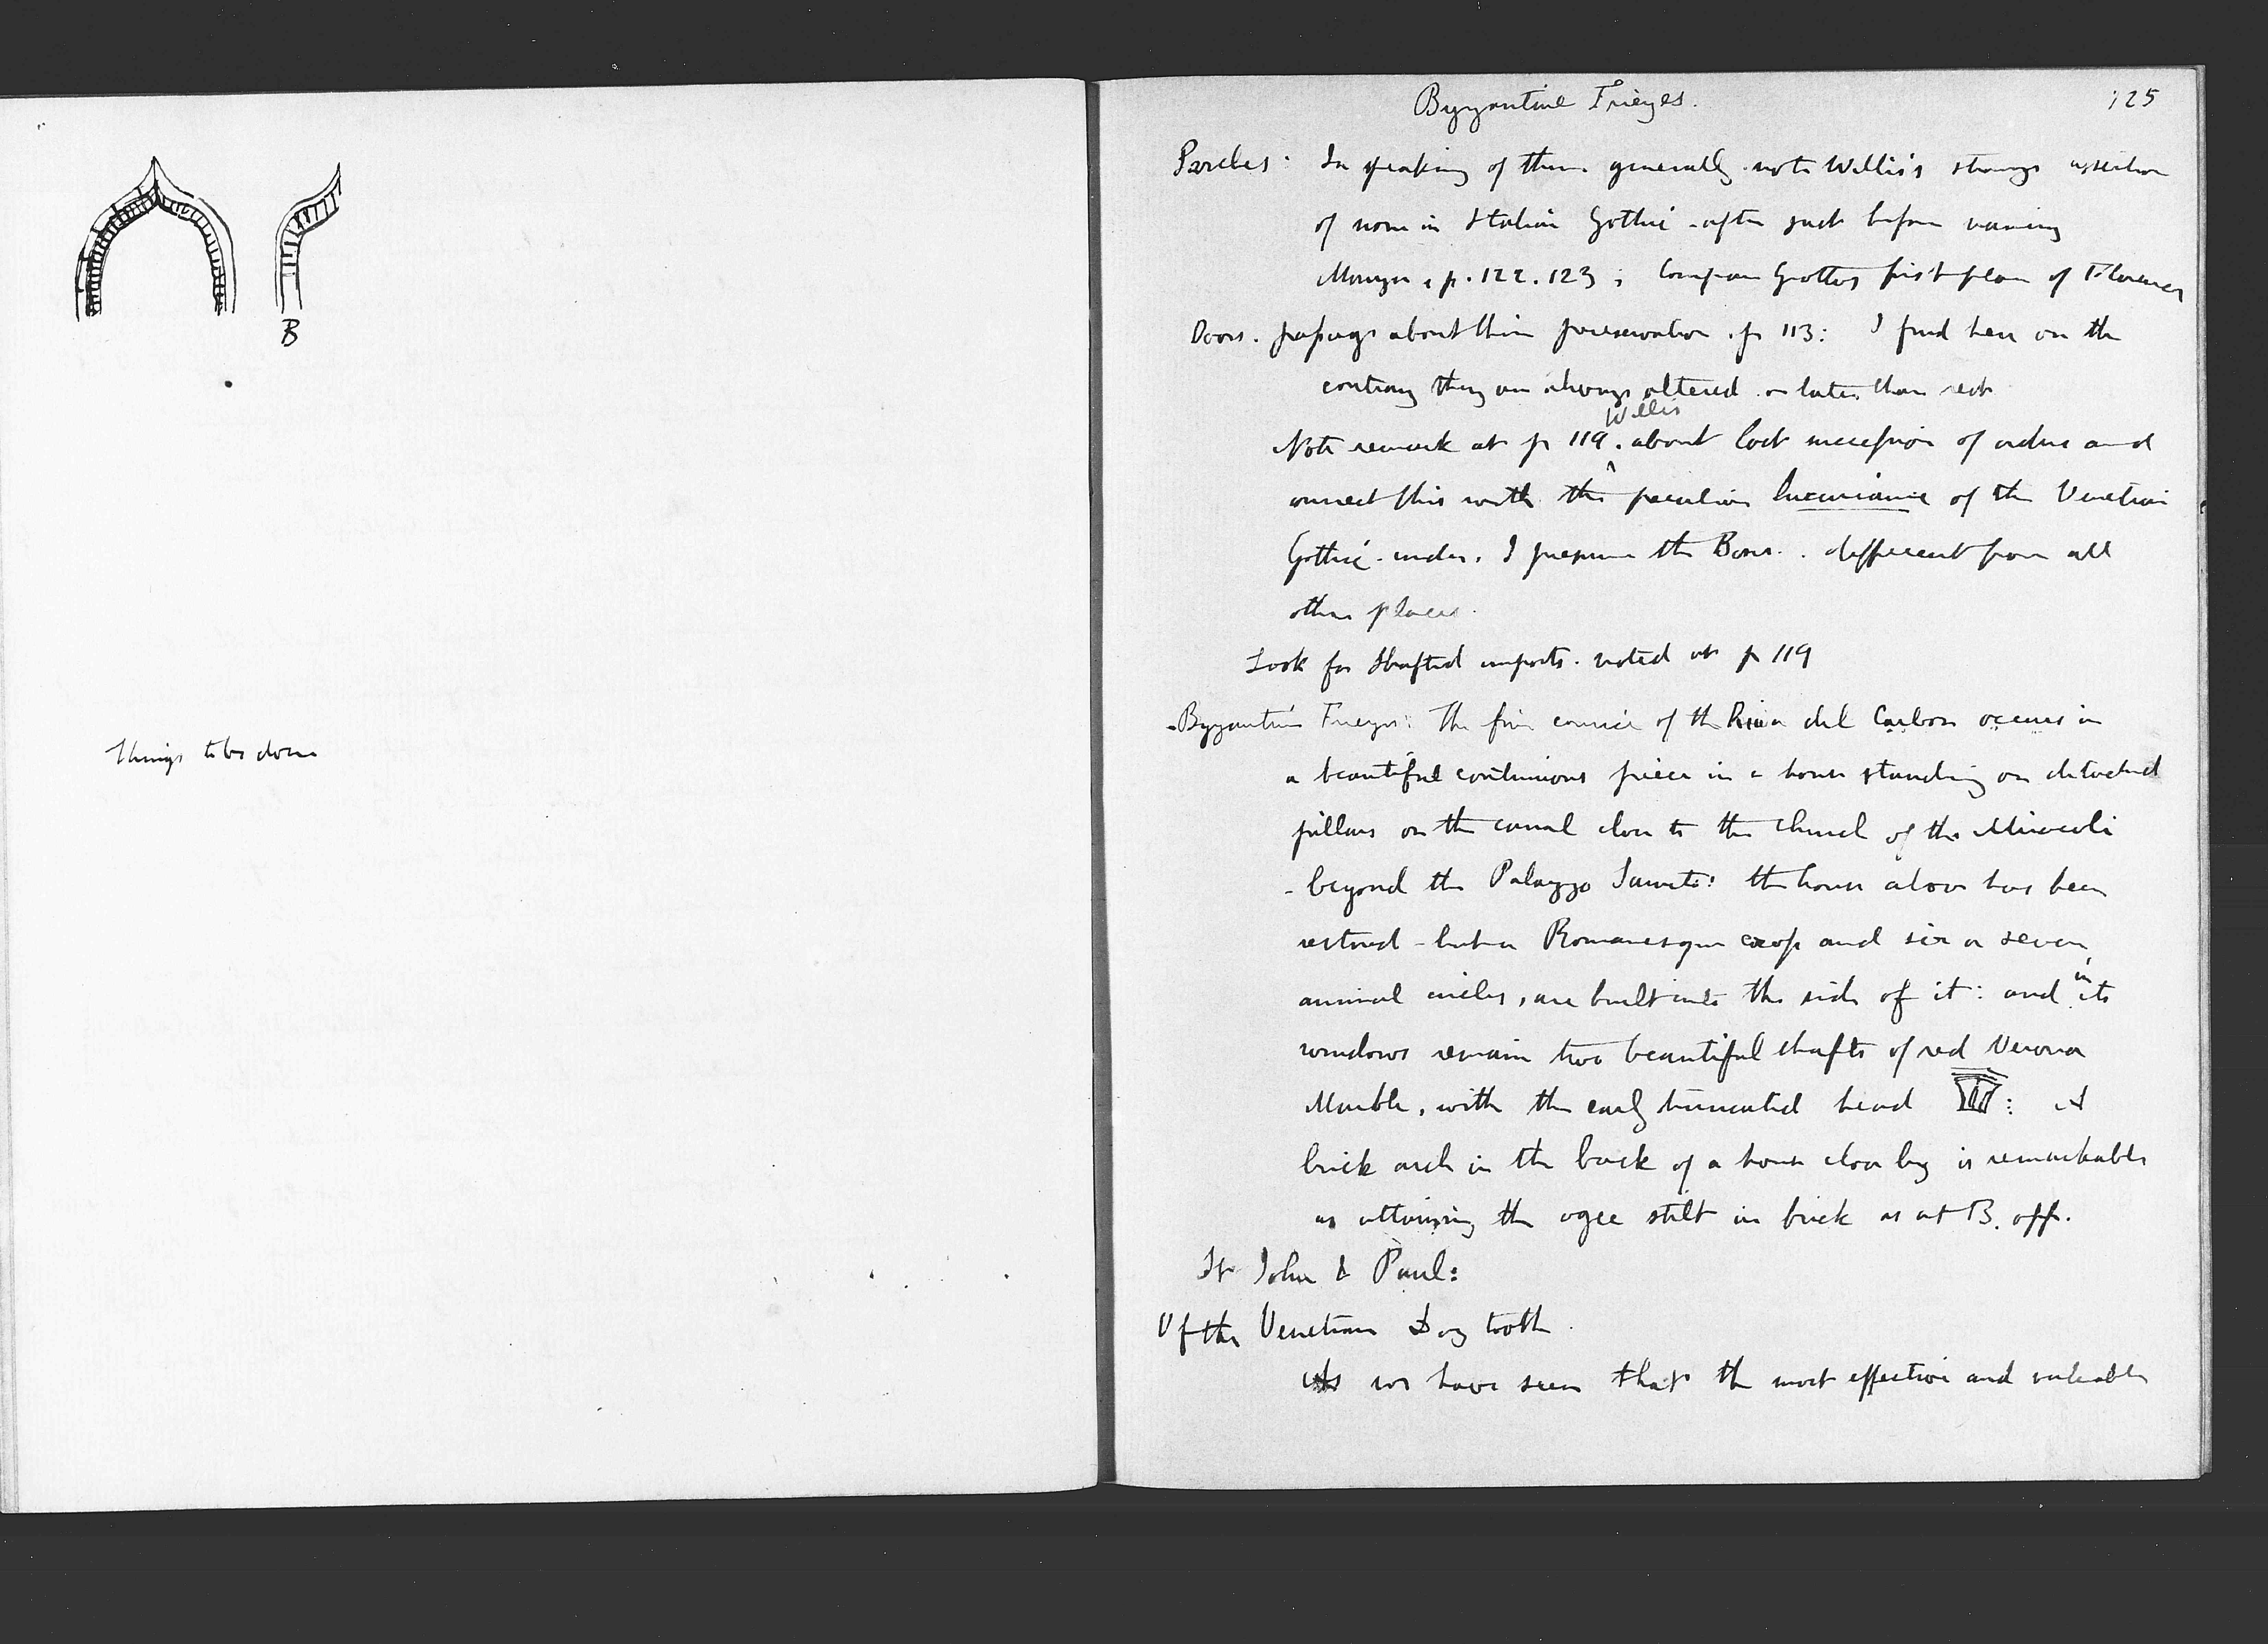 B
Things to be done
Byzantine Friezes.
125
Porches: In speaking of them generally note Willis's strange assertion
of none in Italian Gothic - after just before naming
p. 122. 123; Compare Giottos first plan of Florence
Doors. passage about their preservation. p 113: I find here on the
contrary they are always altered or later than rest
Willis
Note remark at p 119. about lost succession of orders and
connect this with the peculiar luxuriance of the Venetian
Gothic - under, I presume the Bons. different from all
other places.
Look for shafted imposts. noted at p 119
- Byzantine Friezes: The fine cornice of the Riva del Carbon occurs in
a beautiful continuous piece in a house standing on detached
pillars on the canal close to the church of the Miracoli
- beyond the Palazzo Sanuto: the house above has been
restored - but a Romanesque cross and six or seven
animal circles, are built into the side of it: and in its
windows remain two beautiful shafts of red Verona
Marble, with the early truncated head : A
brick arch in the back of a house close by is remarkable
as attaining the ogee stilt in brick as at B. opp.
St John & Paul:
Of the Venetian Dog tooth.
As we have seen that the most effective and valuable